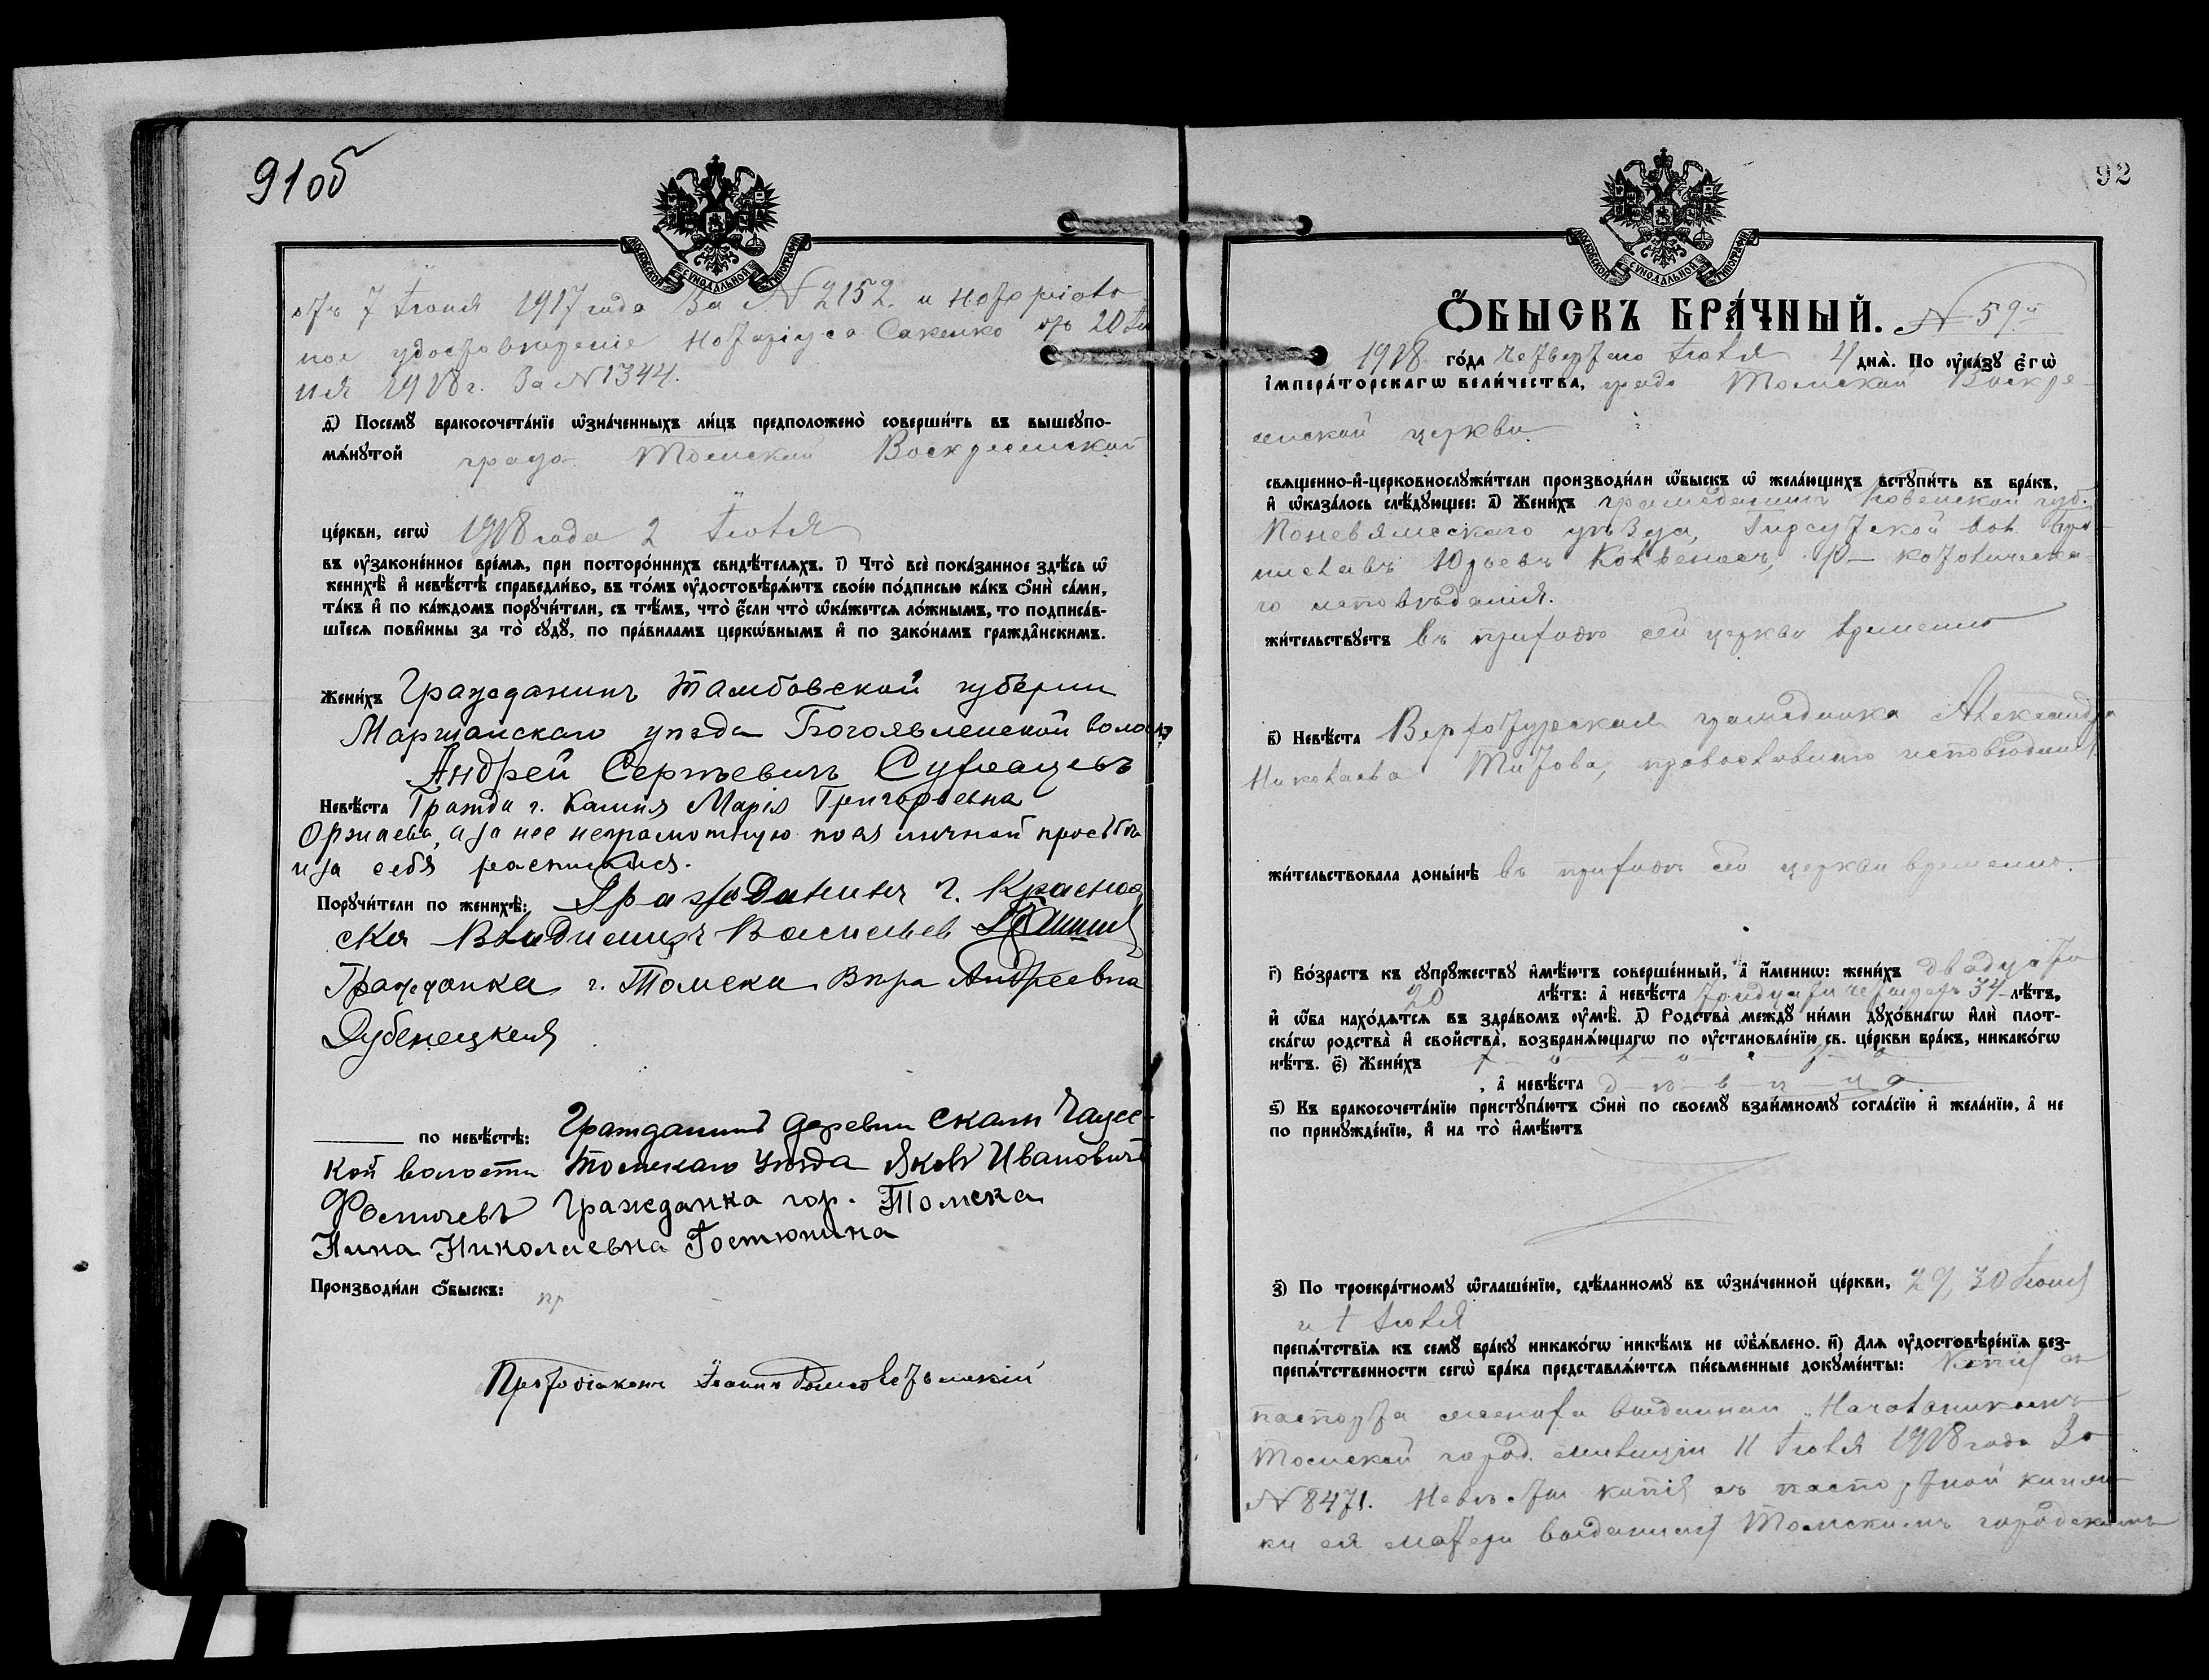 91об
МОСКОВСКОЙ СѴНОДАЛЬНОЙ ТИПОГРАФІИ
отъ 7 Іюня 1917 года за № 2152. и нотаріаль
ное удостовѣреніе Нотаріуса Сакенко отъ 20 Iю
ня 1918 г. за № 1344.
д҃і) Посемꙋ̀ бракосочета́нїе ѡ҆зна́ченныхъ ли́цъ предположено̀ соверши́ть въ вышеꙋпо-
мѧ́нꙋтой града Томской Воскресенской
це́ркви, сегѡ̀ 1918 года 2 Іюля
въ ᲂу҆зако́не́нное вре́мѧ, при посторо́ннихъ свидѣ́телѧхъ. і҃) Что̀ всѐ пока́занное здѣ́сь ѡ҆
женихѣ̀ и҆ невѣ́стѣ справедли́во, въ то́мъ ᲂу҆достовѣрѧ́ютъ свое́ю по́дписью ка́къ ѻ҆нѝ са́ми,
та́къ и҆ по ка́ждомъ порꙋчи́тели, съ тѣ́мъ, что̀ є҆́сли что̀ ѡ҆ка́жетсѧ ло́жнымъ, то подписа́в-
шїесѧ пови́нны за то̀ сꙋдꙋ̀, по пра́виламъ церкѡ́внымъ и҆ по зако́намъ гражда́нскимъ.
Жени́хъ Гражданинъ Тамбовской губерніи
Моршанскаго уѣзда Богоявленской волос
Андрей Сергѣевичъ
Невѣ́ста Гражда г. Камня Марія Григорьевна
а за нее неграмотную по ея личной просьбѣ
и за себя росписался.
Порꙋчи́тели по женихѣ̀: Гражданинъ г. Красноя
ска Владимиръ Васильев
Гражданка г. Томска Вѣра Андреевна
Дубенецкая
по невѣ́стѣ: Гражданинъ деревни Скалы Чаус-
кой волости Томскаго Уѣзда Яковъ Ивановичъ
Фомичевъ Гражданка гор. Томска
Нина Николаевна Гостюнина
Производи́ли ѻ҆́быскъ: пр
Протодіаконъ Іоаннъ
92
МОСКОВСКОЙ СѴНОДАЛЬНОЙ ТИПОГРАФІИ
Ѻ҆́БЫСКЪ БРА́ЧНЫЙ. № 59й
1918 го́да четвертаго Іюля 4 днѧ̀. По ᲂу҆ка́зꙋ є҆гѡ̀
і҆мпера́торскагѡ вели́чества, града Томской Воскре-
сенской церкви
свѧще́нно-и҆-церковнослꙋжи́тели производи́ли ѻ҆́быскъ ѡ҆ жела́ющихъ встꙋпи́ть въ бра́къ,
и҆ ѡ҆каза́лось слѣ́дꙋющее: а҃) Жени́хъ гражданинъ Ковенской губ.
Поневѣжскаго уѣзда, вол. Бро-
ниславъ Юрьевъ р— католическа-
го исповѣданія.
жи́тельствꙋетъ въ приходѣ сей церкви временно
в҃) Невѣ́ста Верхотурская гражданка Александра
Николаева Титова, православнаго исповѣданія
жи́тельствовала донынѣ въ приходѣ сей церкви временно
г҃) Во́зрастъ къ сꙋпрꙋ́жествꙋ и҆мѣ́ютъ соверше́нный, а҆ и҆́меннѡ: жени́хъ двадцати
20 лѣ́тъ: а҆ невѣ́ста тридцати четырехъ 34 лѣ́тъ,
и҆ ѻ҆́ба нахо́дѧтсѧ въ здра́вомъ ᲂу҆мѣ̀. д҃) Родства̀ междꙋ̀ ни́ми дꙋхо́внагѡ и҆лѝ плот-
ска́гѡ родства̀ и҆ сво́йства̀, возбранѧ́ющагѡ по ᲂу҆становле́нїю св. це́ркви бра́къ, никако́гѡ
нѣ́тъ. є҃) Жени́хъ х-о-л-о-с-т-ъ
, а҆ невѣ́ста д-ѣ-в-и-ц-а.
ѕ҃) Къ бракосочета́нїю пристꙋпа́ютъ ѻ҆нѝ по своемꙋ̀ взаи́мномꙋ согла́сїю и҆ жела́нїю, а҆ не
по принꙋжде́нїю, и҆ на то̀ и҆мѣ́ютъ
з҃) По троекра́тномꙋ ѡ҆глаше́нїю, сдѣ́ланномꙋ въ ѡ҆зна́ченной це́ркви, 29, 30 Іюня
и 1 Іюля
препѧ́тствїѧ къ семꙋ̀ бра́кꙋ никако́гѡ никѣ́мъ не ѡ҆б̾ѧ́влено. и҃) Длѧ ᲂу҆достовѣре́нїѧ без-
препѧ́тственности сегѡ̀ бра́ка представлѧ́ютсѧ пи́сьменные докꙋме́нты: Копія съ
паспорта жениха выданная Начальникомъ
Томской город. милиціи 11 Іюля 1918 года за
№ 8471. Невѣсты копія съ паспортной книж-
ки ея матери выданная Томскимъ городскимъ